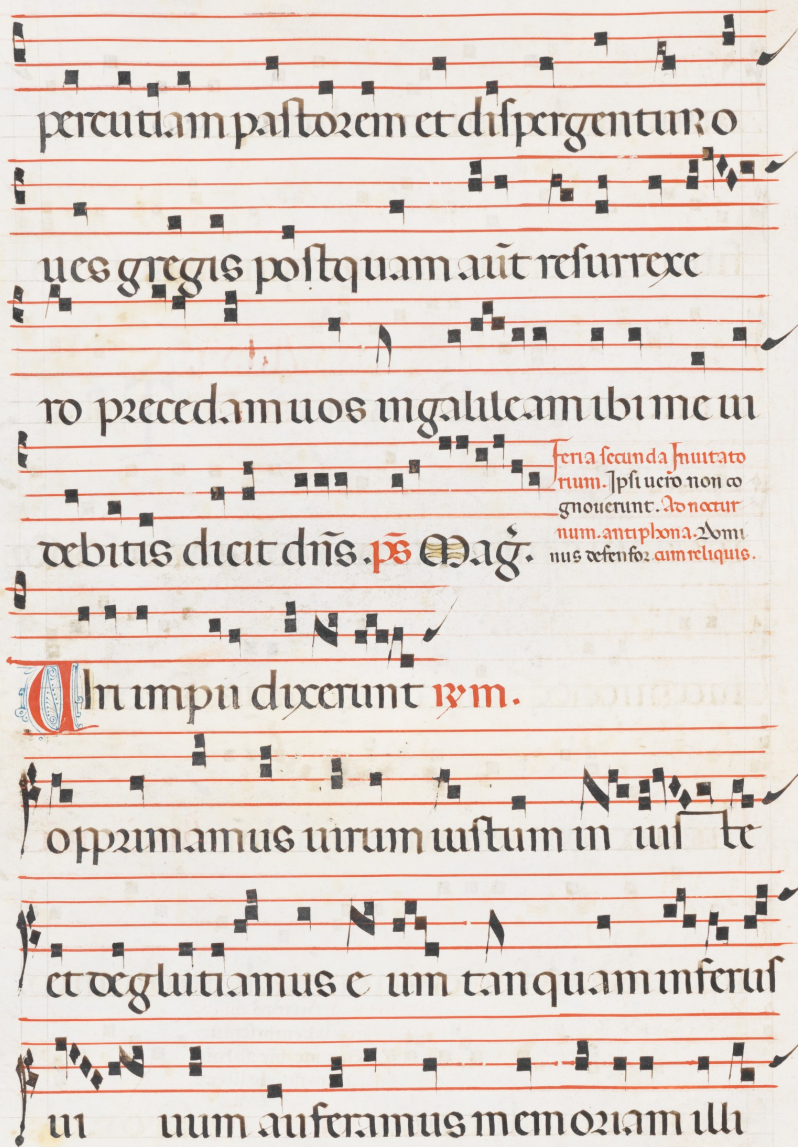 percutiam pastorem et dispergentur o
ues gregis postquam aut̄ resurrexe
ro precedam uos in galileam ibi me ui
debitis dicit dn̄s. ps̄ Mag̃.
feria secunda Inuitato
rium. Ipsi uero non co
gnouerunt. Ad noctur
num. antiphona. Domi
nus defensor cum reliquis.
Dixerunt impii
opprimamus uirum iustum in ius te
et deglutiamus e um tanquam infernus
ui uum auferamus memoriam illi